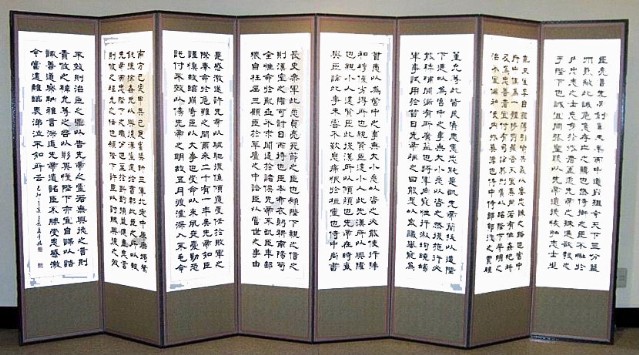 臣亮言先帝創業未半而中道崩殂今天下三分益
州罷敝此誠危急存亡之秋也然侍衛之臣不懈於
內忠志之士忘身於外者蓋追先帝之殊遇欲報之
於陛下也誠宜開張聖聽以光先帝遺德恢志士之
氣不宜妄自菲薄引喻失義以塞忠諫之路也宮中
府中俱為一體陟罰臧否不宜異同若有作姦犯科
及為忠善者宜付有司論其刑賞以昭陛下平明之
治不宜偏私使內外異法也侍中侍郎郭攸之費禕
董允等此皆良實志慮忠純是以先帝簡拔以遺陛
下愚以為宮中之事事無大小悉以咨之然後施行必
能裨補闕漏有所廣益也將軍向寵性行淑均曉暢
軍事試用於昔日先帝稱之曰能是以眾議舉寵為
督愚以為營中之事事無大小悉以咨之必能使行陣
和穆優劣得所也親賢臣遠小人此先漢所以興隆
也親小人遠賢臣此後漢所以傾頹也先帝在時每
與臣論此事未嘗不歎息痛恨於桓靈也侍中尚書
長史參軍此悉貞亮死節之臣也願陛下親之信之
則漢室之隆可計日而待也臣本布衣躬耕南陽苟
全性命於亂世不求聞達於諸侯先帝不以臣卑鄙
猥自枉屈三顧臣於草廬之中諮臣以當世之事由
是感激遂許先帝以驅馳後值傾覆受任於敗軍之
際奉命於危難之間爾來二十有一年矣先帝知臣
謹慎故臨崩寄臣以大事也受命以來夙夜憂勤恐
託付不效以傷先帝之明故五月渡瀘深入不毛今
南方已定甲兵已足當獎帥三軍北定中原庶竭駑
鈍攘除姦凶以興復漢室還於舊都此臣之所以報
先帝而忠陛下之職分也至於斟酌損益進盡忠言
則攸之禕允之任也願陛下託臣以討賊興復之效
不效則治臣之罪以告先帝之靈若無興德之言則
責攸之禕允等咎以彰其慢陛下亦宜自課以諮
諏善道察納雅言深追先帝遺詔臣不勝受恩感激
今當遠離臨表涕泣不知所云